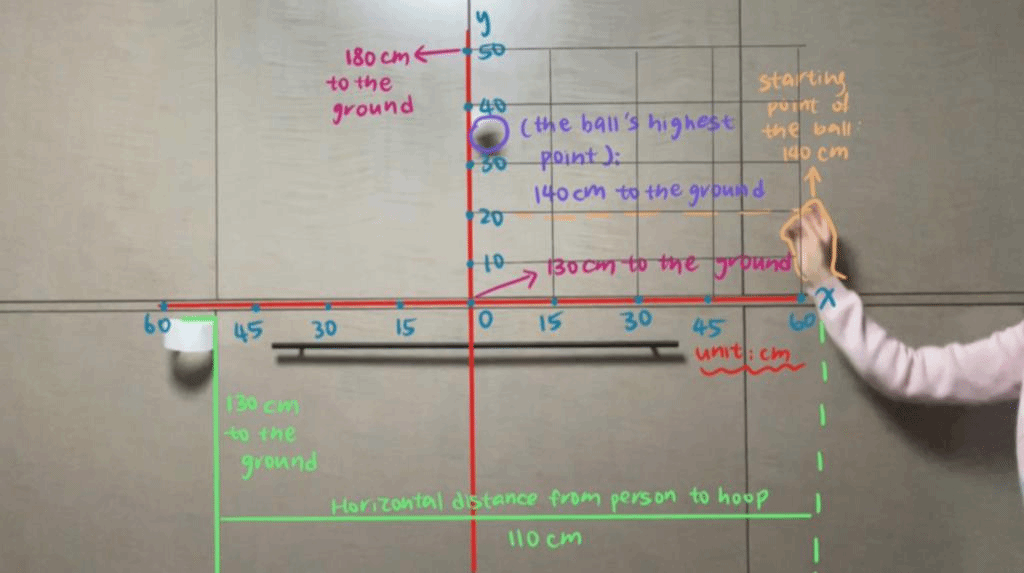 y
50
180 cm
to the
ground
40
(the ball's highest
point):
140 cm to the ground
30
starting
point of
the ball:
140 cm
20
10
130 cm to the ground
60 45 30 15 0 15 30 45 60 x
unit: cm
130 cm
to the
ground
Horizontal distance from person to hoop
110 cm